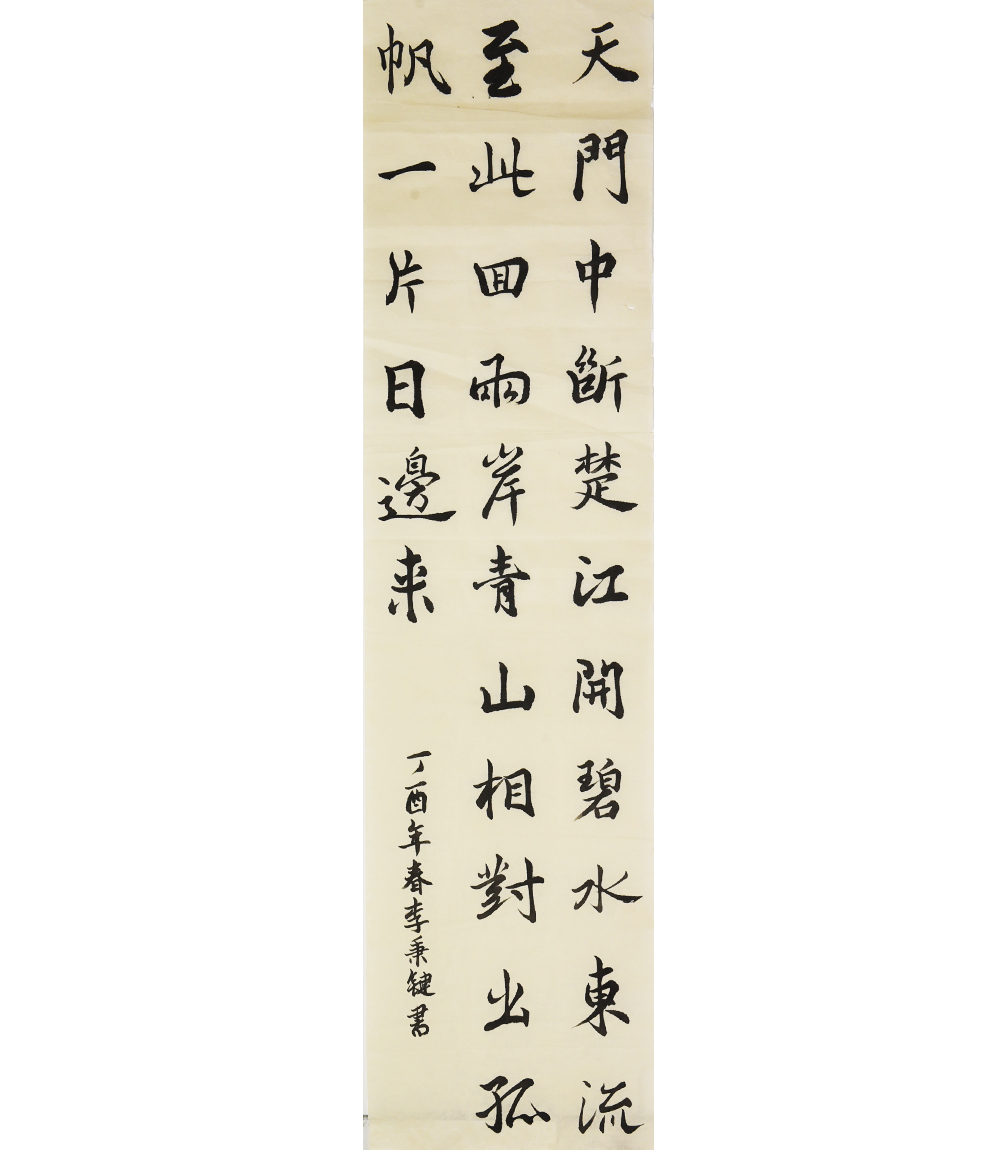 天門中斷楚江開碧水東流
至此回兩岸青山相對出孤
帆一片日邊来
丁酉年春李秉键書